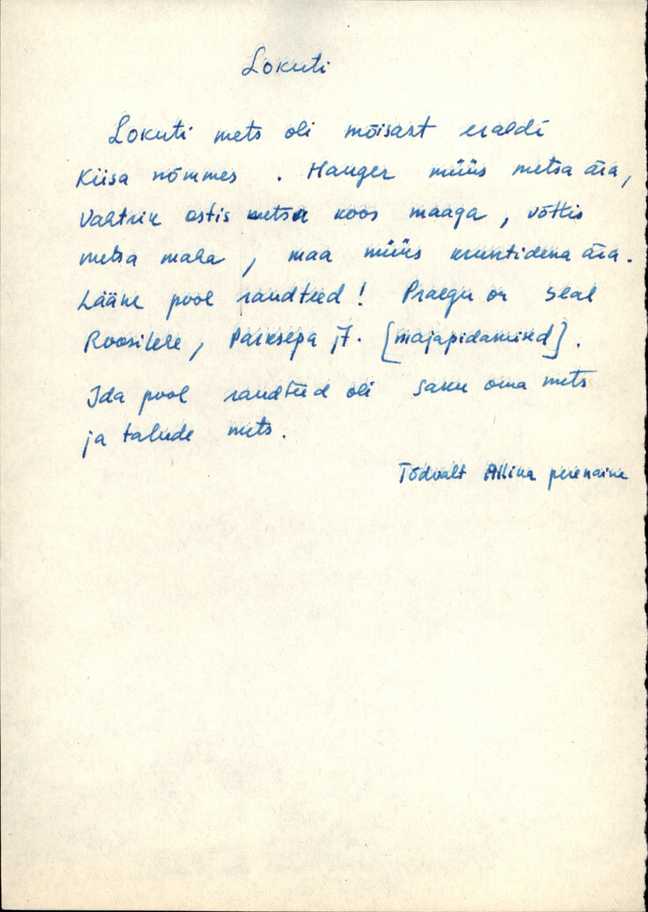 Lokuti
Lokuti mets oli mõisast eraldi
Kiisa nõmmes. Hanger müüs metsa ära,
Vahtrik ostis metsa koos maaga, võttis
metsa maha, maa müüs kruntidena ära.
Lääne pool raudteed! Praegu on seal
Roosilehe, Parksepa jt. [majapidamised].
Ida pool raudteed oli Saku oma mets
ja talude mets.
Tõdvalt Allina perenaine